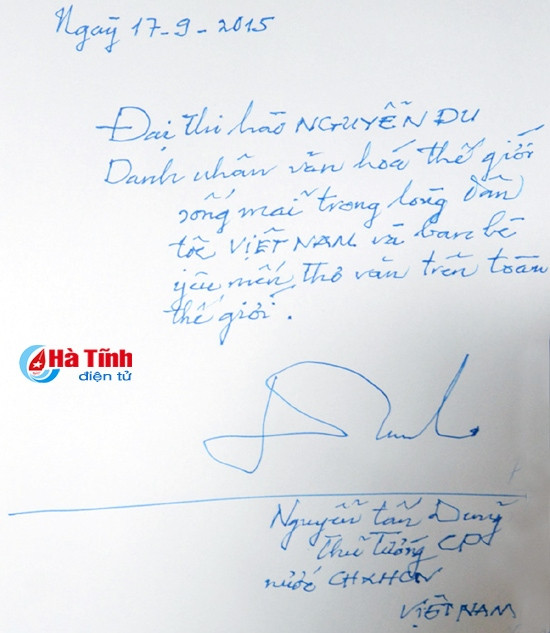 Ngaỹ 17-9-2015
Đại thi hào NGUYỄN DU
Danh nhân văn hoá thế giới
sống mãi trong lòng dân
tộc VIỆT NAM và bạn bè
yêu mến thơ văn trên toàn
thế giới.
Hà Tĩnh
điện tử
Nguyễn tấn Dũng
Thủ Tướng CP
nước CHXHCN
VIỆT NAM